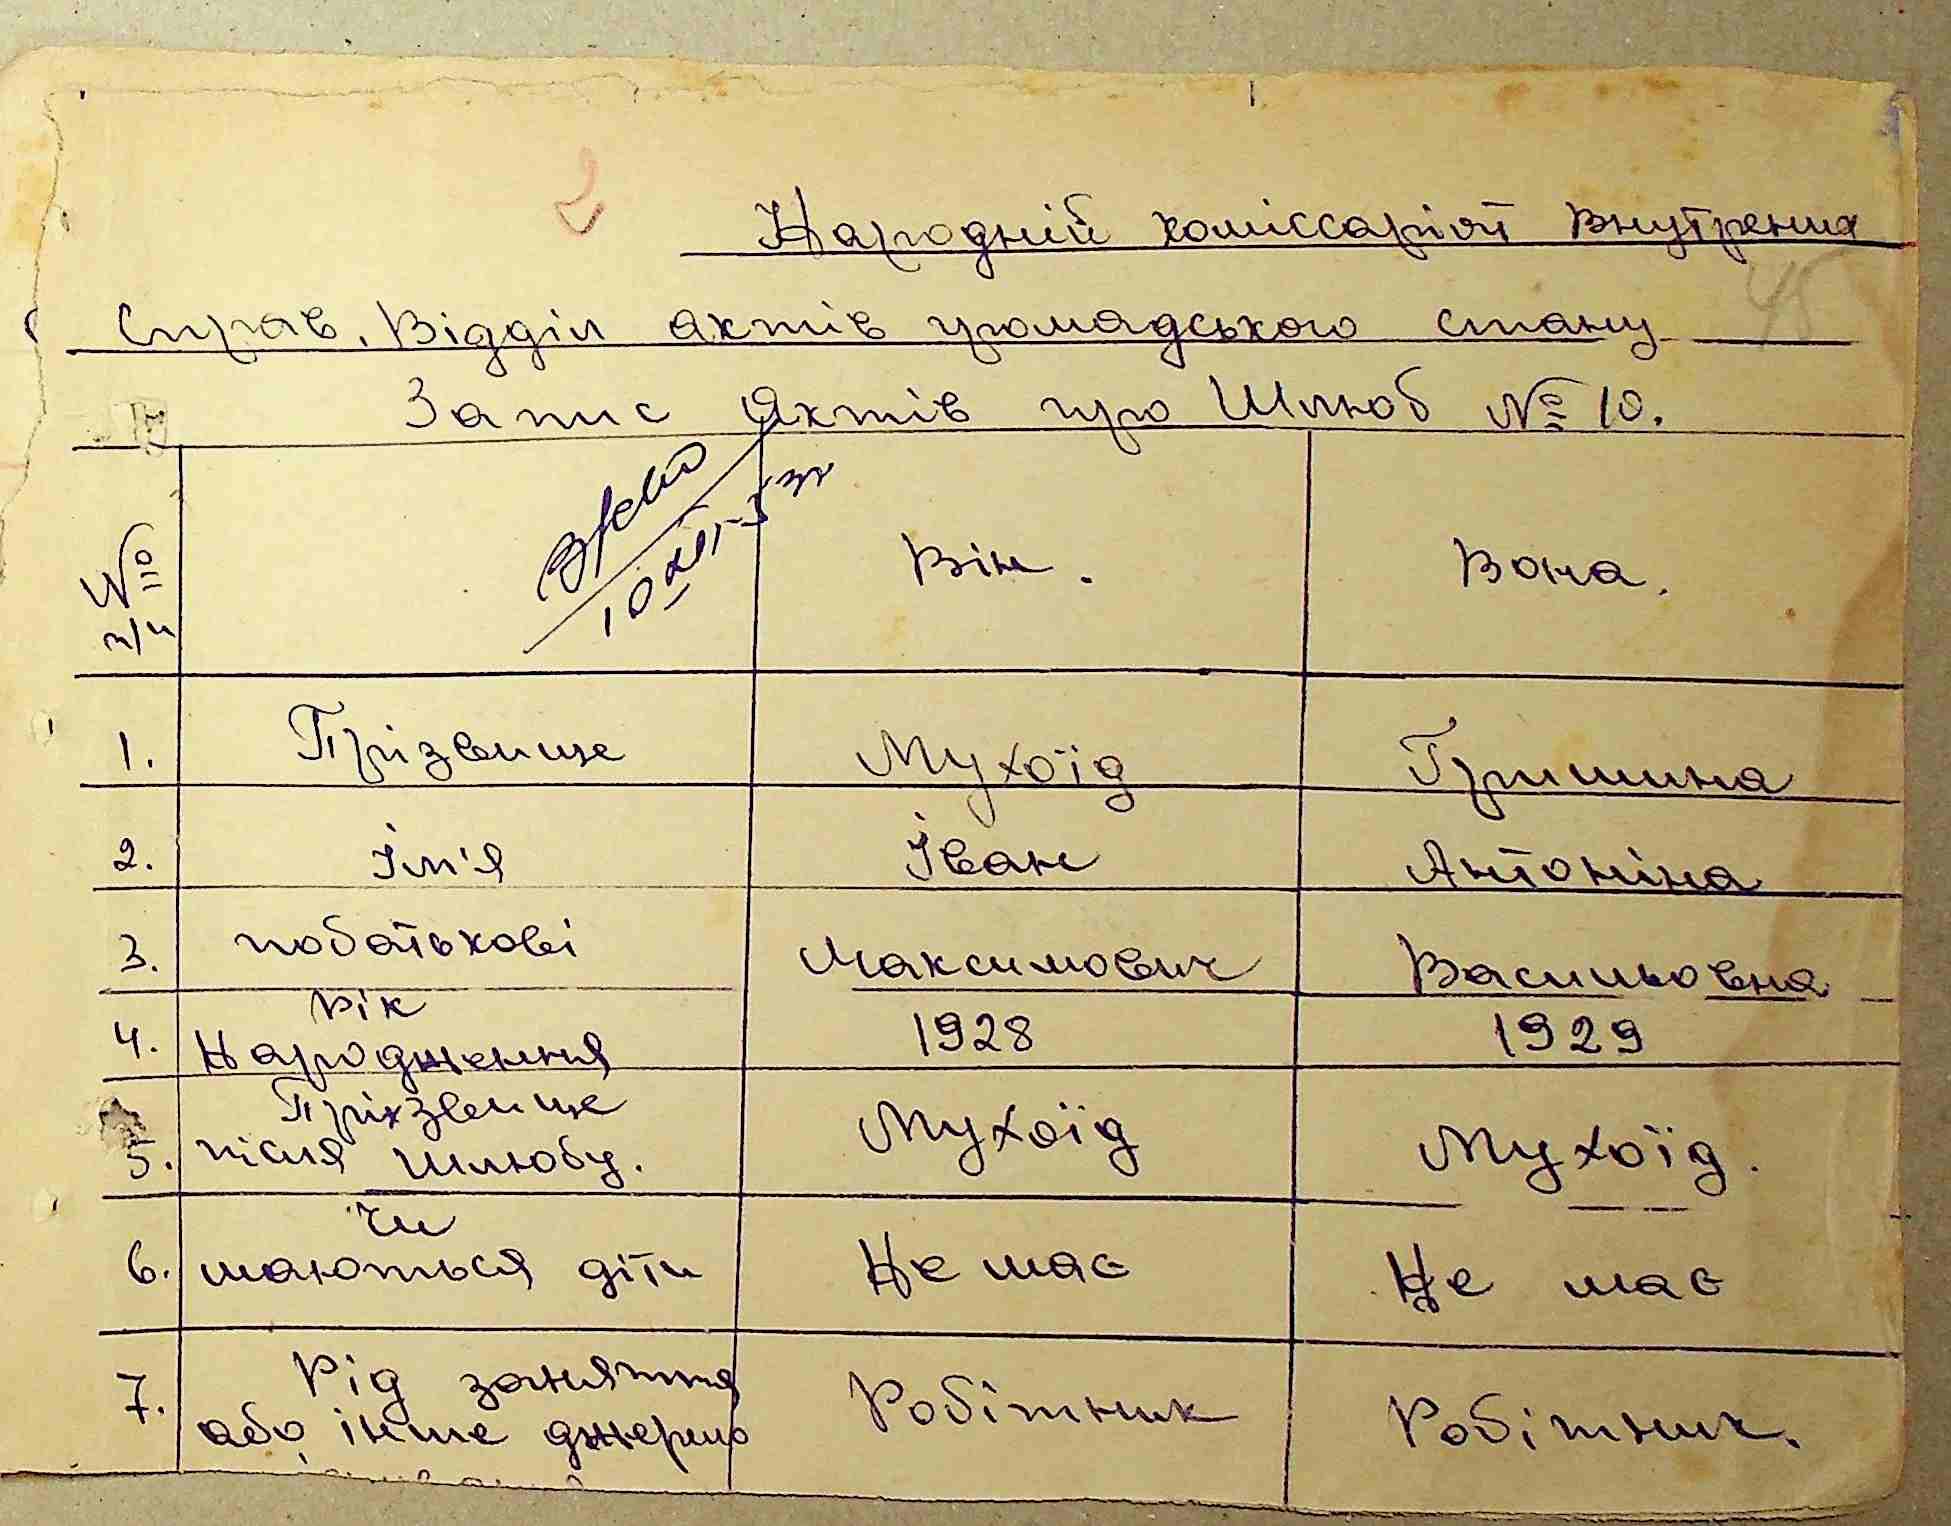 Народній коміссаріят Внутрених
Справ. Відділ актів громадського стану
45
Запис Актів про Шлюб № 10.
№ п/п
10
Він.
Вона.
1. Прізвище Мухоїд Гришина
2. Ім'я Іван Антоніна
3. побатькові Максимович Васильовна
рік
4. Народження 1928 1929
Пріхзвище
5. після шлюбу. Мухоїд Мухоїд.
Чи
6. маються діти Не має Не має
Рід заняття
7. або інше джерело Робітник Робітник.